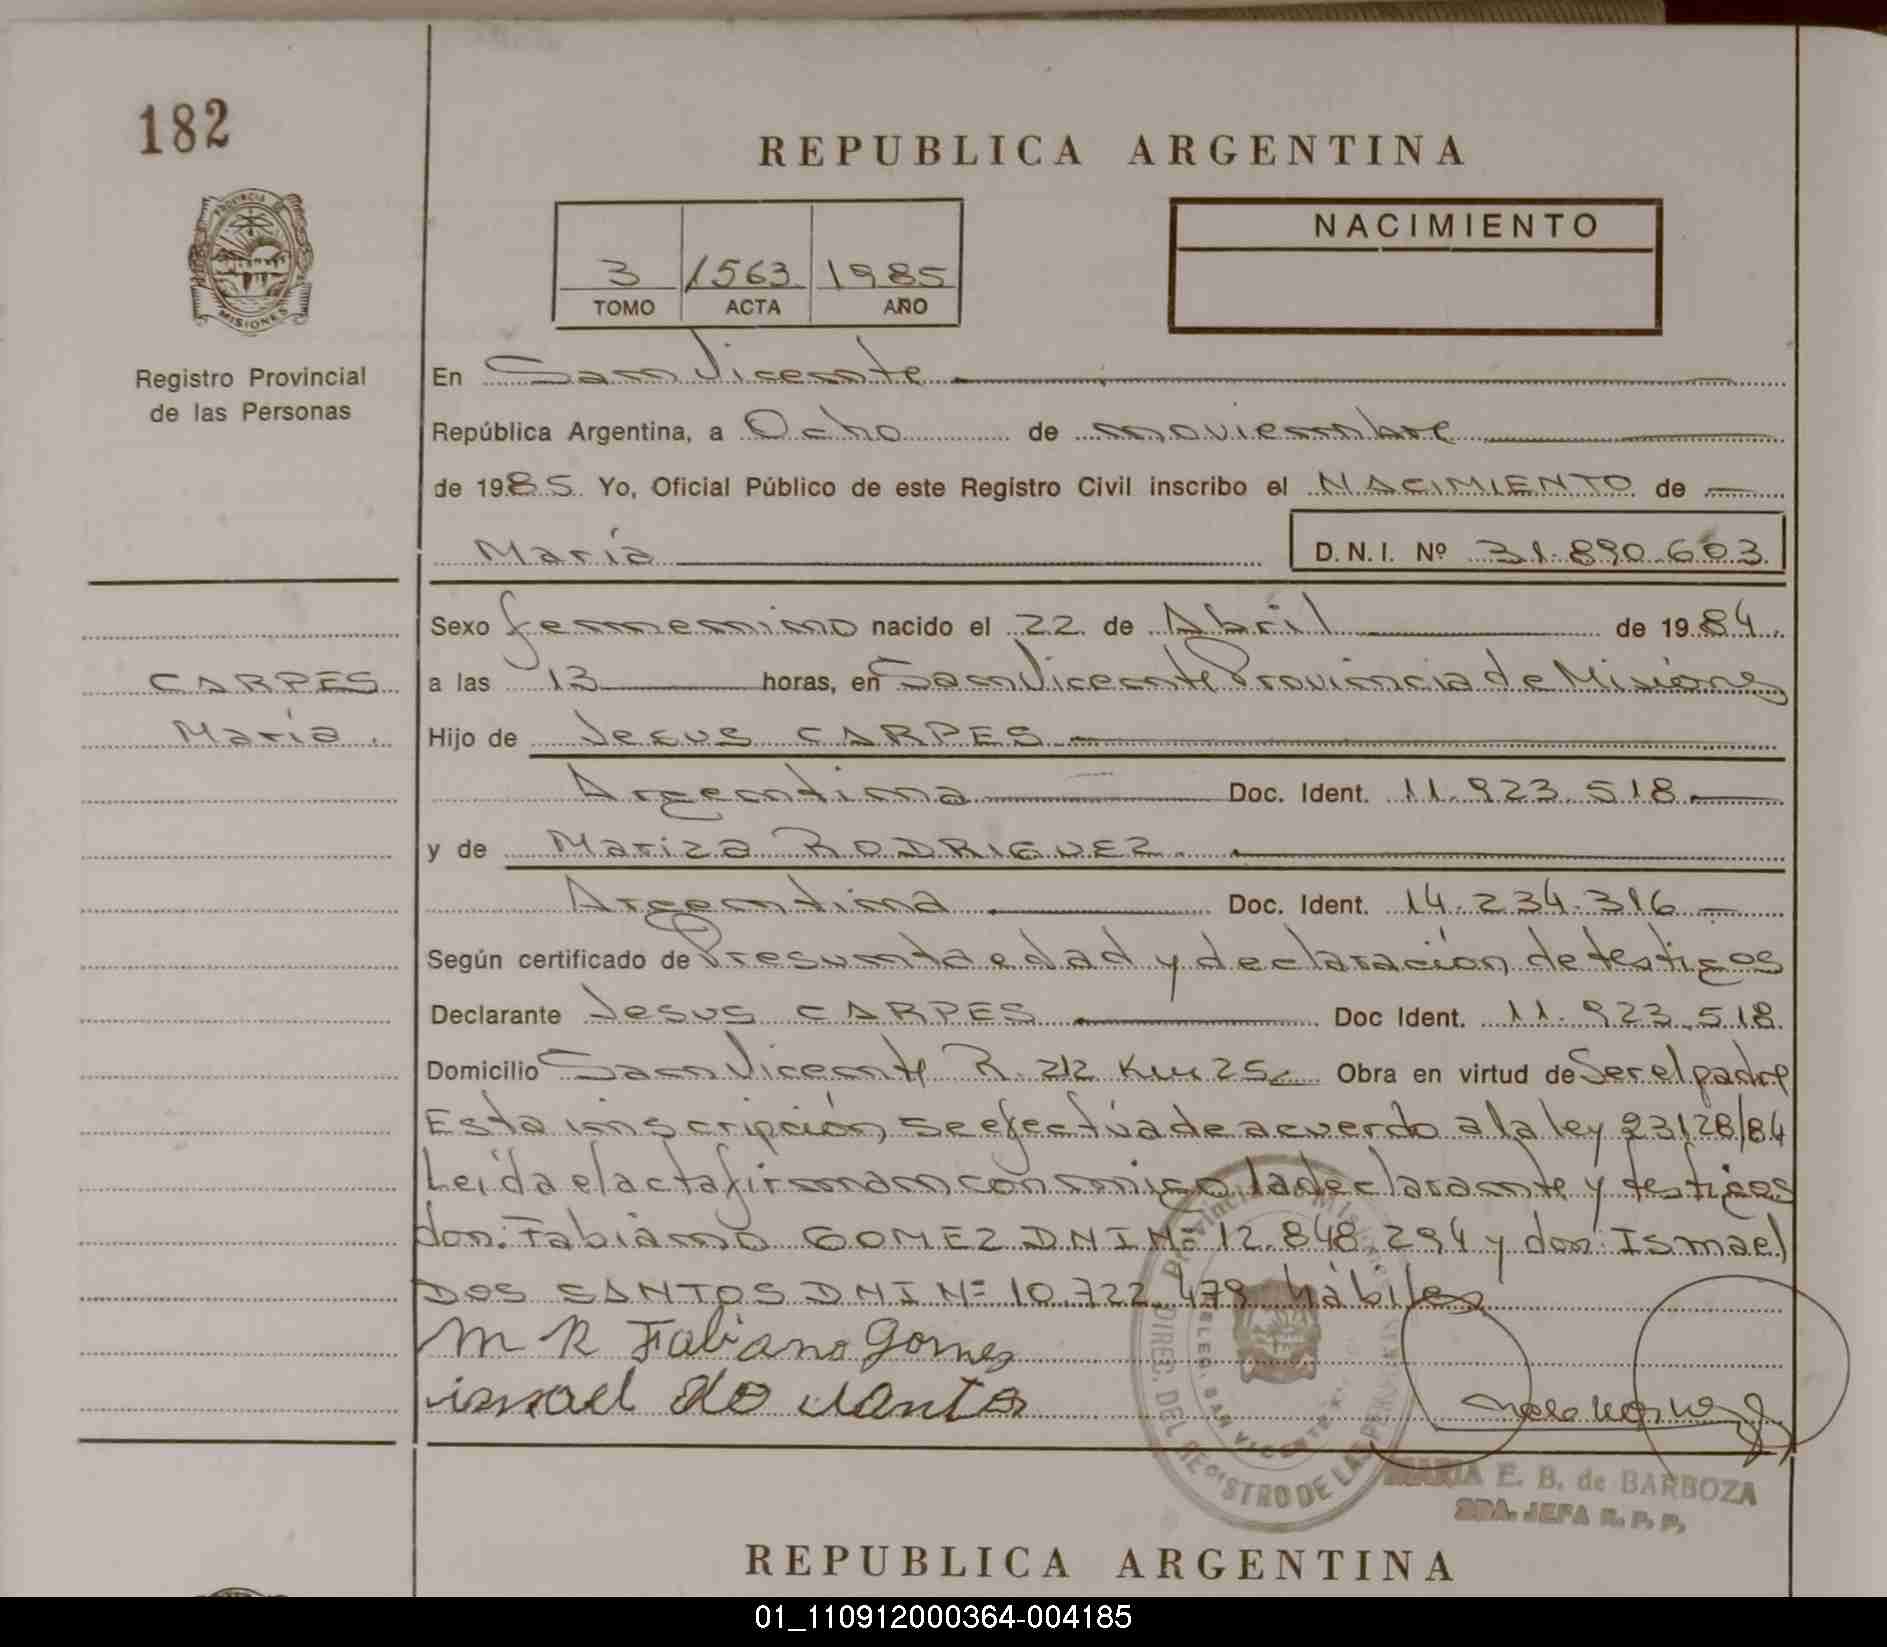 182
REPUBLICA ARGENTINA
PROVINCIA DE
MISIONES
NACIMIENTO
3 1563 1985
TOMO ACTA AÑO
Registro Provincial
de las Personas
En San Vicente
República Argentina, a Ocho de noviembre
de 1985 Yo, Oficial Público de este Registro Civil inscribo el NACIMIENTO de
María D.N.I. Nº 31.890.603
CARPES
María
Sexo femenino nacido el 22 de Abril de 1984
a las 13 horas, en San Vicente Provincia de Misiones
Hijo de Jesus CARPES
Argentina Doc. Ident. 11.923.518
y de Mariza RODRIGUEZ
Argentina Doc. Ident. 14.234.316
Según certificado de Presunta edad y declaración de testigos
Declarante Jesus CARPES Doc Ident. 11.923.518
Domicilio San Vicente R. 212 Km 25 Obra en virtud de Ser el padre
Esta inscripción se efectúa de acuerdo a la ley 23128/84
Leída el acta firman conmigo la declarante y testigos
don: Fabiano GOMEZ DNI Nº 12.848.294 y don: Ismael
DOS SANTOS DNI Nº 10.722.479 hábiles
M R Fabiano Gomes
ismael do santos
Provincia de Misiones
DIREC. DEL REGISTRO DE LAS PERSONAS
SAN VICENTE
MARIA E. B. de BARBOZA
SDA. JEFA R. P. P.
REPUBLICA ARGENTINA
01_110912000364-004185